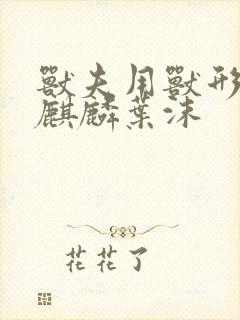 獸夫用獸形
麒麟葉沫
花花了